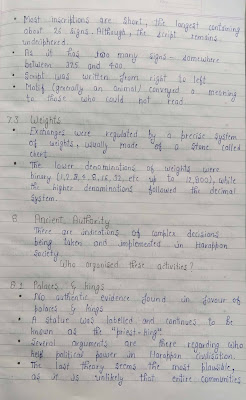 • Most inscriptions are short, the longest containing
about 26 signs. Although, the script remains
undeciphered.
• As it has too many signs - somewhere
between 375 and 400
• Script was written from right to left
• Motif (generally an animal) conveyed a meaning
to those who could not read
7.3 Weights
• Exchanges were regulated by a precise system
of weights, usually made of a stone called
chert.
• The lower denominations of weights were
binary (1, 2, 4, 8, 16, 32, etc up to 12,800), while
the higher denominations followed the decimal
system.
8 Ancient Authority
There are indications of complex decisions
being taken and implemented in Harappan
society.
Who organised these activities?
8.1 Palaces & Kings
• No authentic evidence found in favour of
palaces & kings
• A statue was labelled and continues to be
known as the "priest-king"
• Several arguments are there regarding who
held political power in Harappan civilisation.
• The last theory seems the most plausible,
as it is unlikely that entire communities